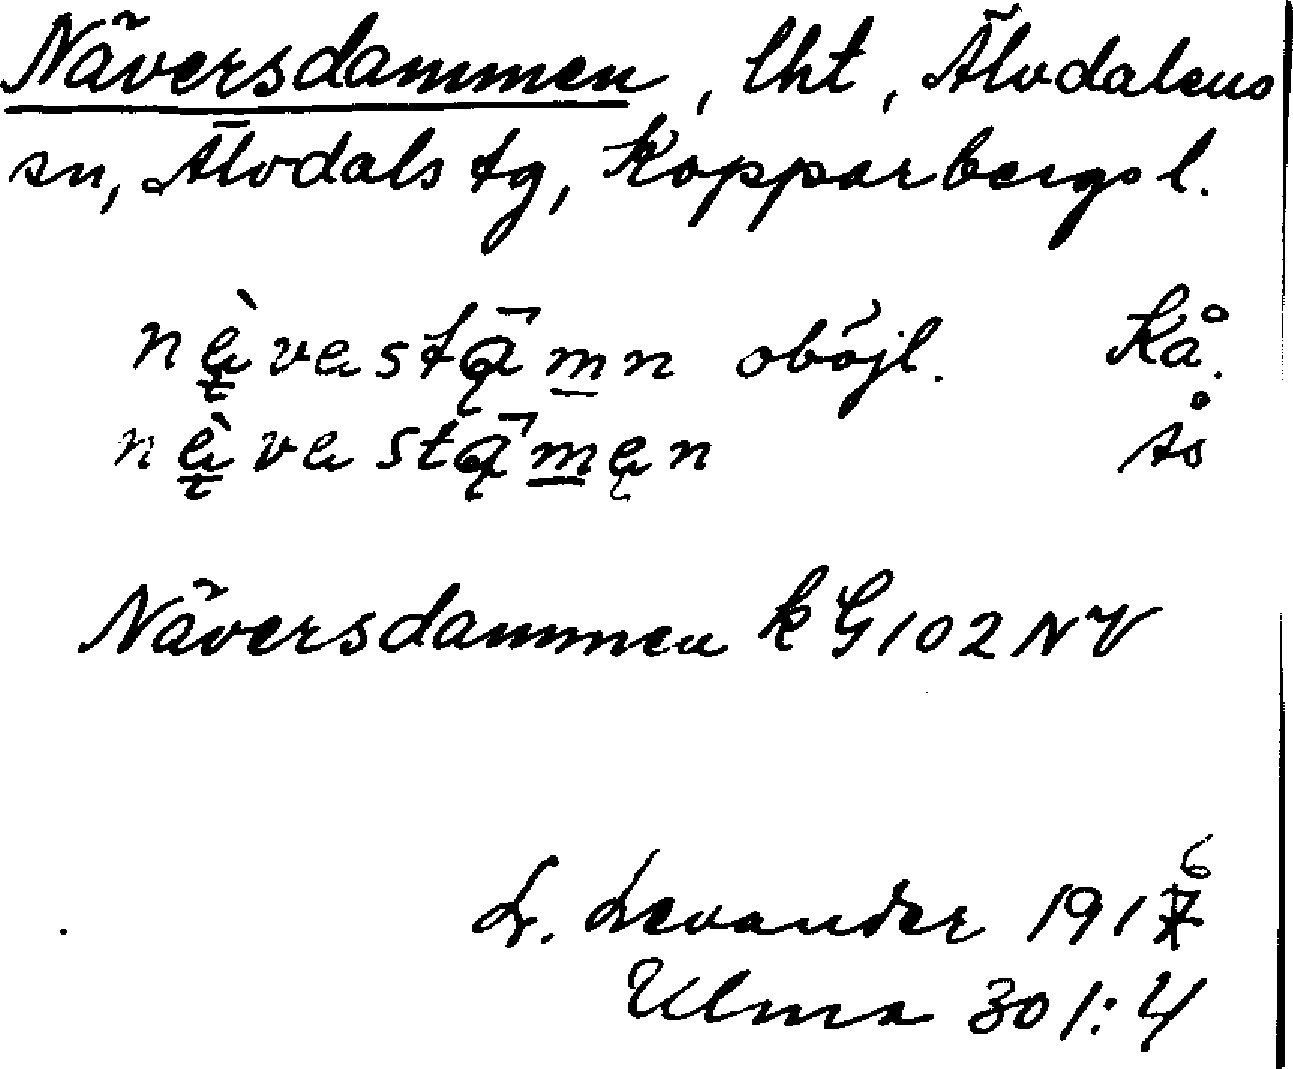 Näversdammen, lht, Älvdalens
sn, Älvdals tg, Kopparbergs l.
nä̀vastą̄m̲n oböjl. Kå.
nä̀vastą̄m̲ęn Ås
Näversdammen k G102NV
L. Levander 1916
Ulma 301:4